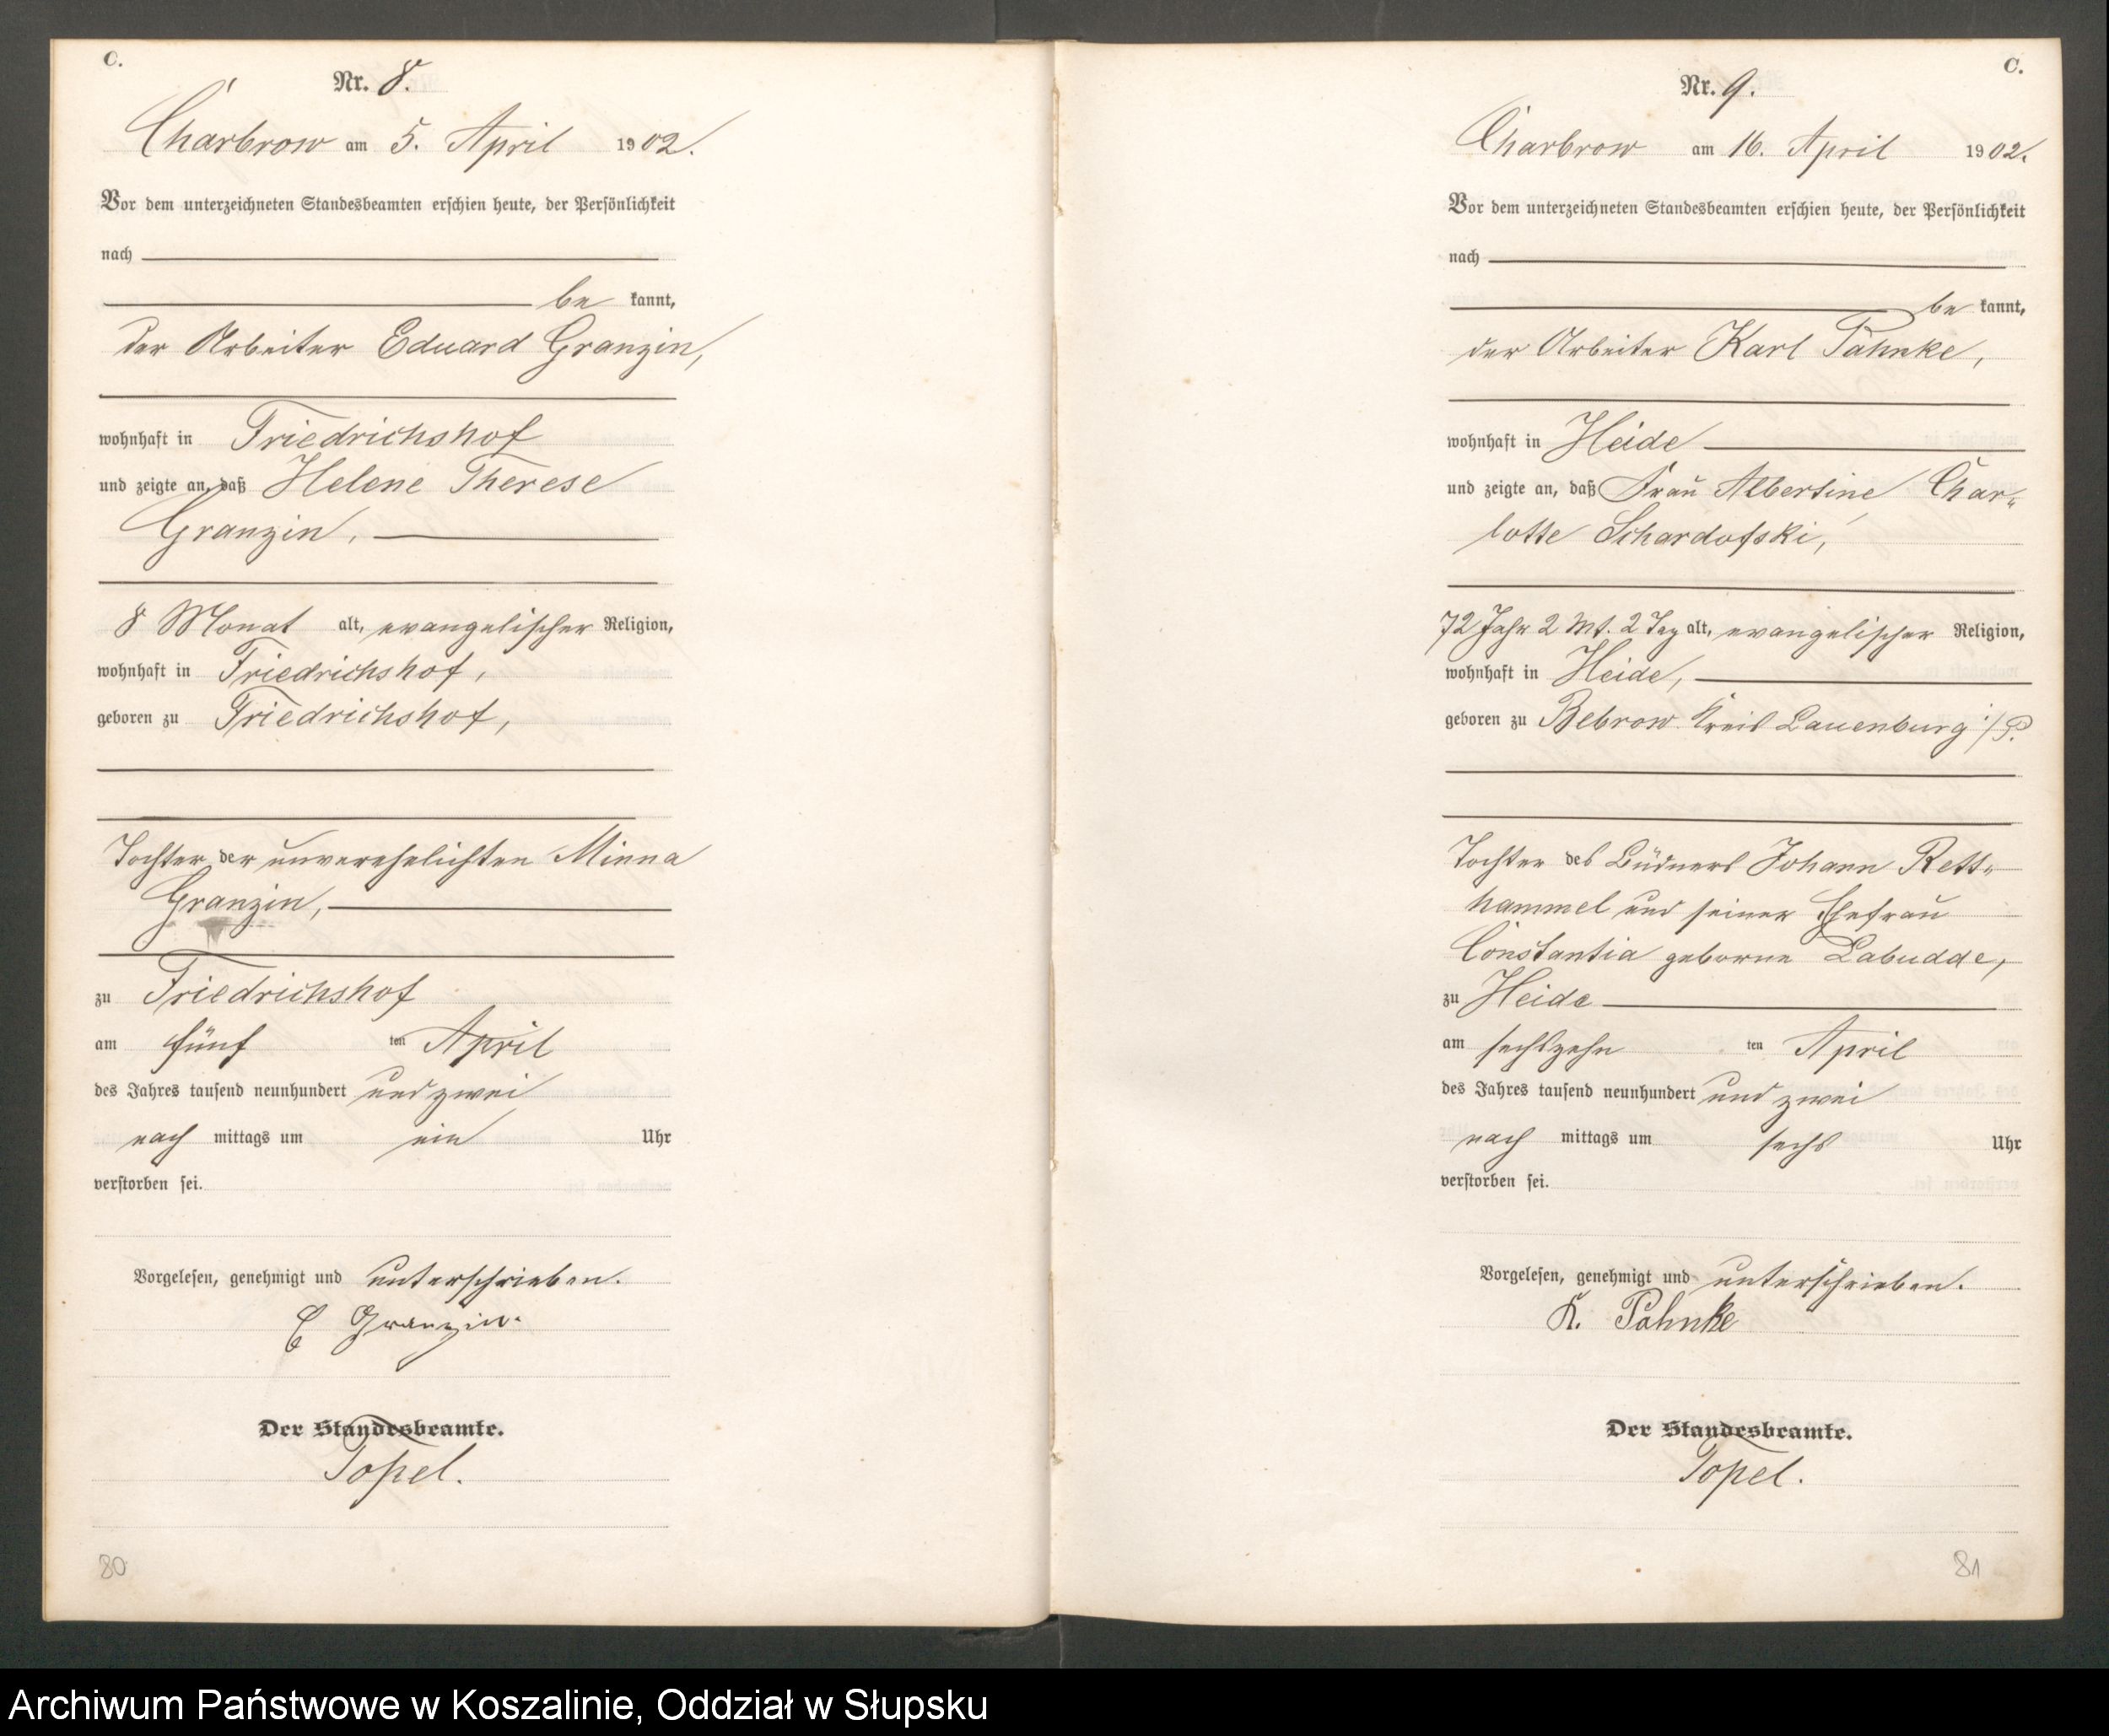 C.
Nr. 8.
Charbrow am 5. April 1902.
Vor dem unterzeichneten Standesbeamten erschien heute, der Persönlichkeit
nach
be kannt,
der Arbeiter Eduard Granzin,
wohnhaft in Friedrichshof
und zeigte an, daß Helene Therese
Granzin,
8 Monat alt, evangelischer Religion,
wohnhaft in Friedrichshof,
geboren zu Friedrichshof,
Tochter der unverehelichten Minna
Granzin,
zu Friedrichshof
am fünf ten April
des Jahres tausend neunhundert und zwei
nach mittags um ein Uhr
verstorben sei.
Vorgelesen, genehmigt und unterschrieben.
E Granzin.
Der Standesbeamte.
Topel.
80
C.
Nr. 9.
Charbrow am 16. April 1902.
Vor dem unterzeichneten Standesbeamten erschien heute, der Persönlichkeit
nach
be kannt,
der Arbeiter Karl Pahnke,
wohnhaft in Heide
und zeigte an, daß Frau Albertine Char-
lotte Schardofski,
72 Jahr 2 Mt. 2 Tag alt, evangelischer Religion,
wohnhaft in Heide,
geboren zu Bebrow Kreis Lauenburg i/P.
Tochter des Büdners Johann Rett-
hammel und seiner Ehefrau
Constantia geborne Labudde,
zu Heide
am sechszehn ten April
des Jahres tausend neunhundert und zwei
nach mittags um sechs Uhr
verstorben sei.
Vorgelesen, genehmigt und unterschrieben.
K. Pahnke
Der Standesbeamte.
Topel.
81
Archiwum Państwowe w Koszalinie, Oddział w Słupsku